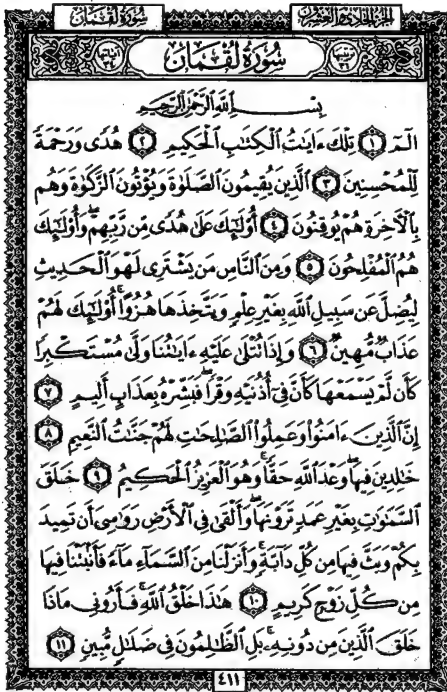 سُورَةُ لُقْمَانَ الجُزْءُ الحَادِي وَالعِشْرُونَ
سُورَةُ لُقْمَانَ
بِسْمِ اللَّهِ الرَّحْمَٰنِ الرَّحِيمِ
الٓمٓ ١ تِلْكَ ءَايَٰتُ ٱلْكِتَٰبِ ٱلْحَكِيمِ ٢ هُدًى وَرَحْمَةً
لِّلْمُحْسِنِينَ ٣ ٱلَّذِينَ يُقِيمُونَ ٱلصَّلَوٰةَ وَيُؤْتُونَ ٱلزَّكَوٰةَ وَهُم
بِٱلْءَاخِرَةِ هُمْ يُوقِنُونَ ٤ أُو۟لَٰٓئِكَ عَلَىٰ هُدًى مِّن رَّبِّهِمْ ۖ وَأُو۟لَٰٓئِكَ
هُمُ ٱلْمُفْلِحُونَ ٥ وَمِنَ ٱلنَّاسِ مَن يَشْتَرِى لَهْوَ ٱلْحَدِيثِ
لِيُضِلَّ عَن سَبِيلِ ٱللَّهِ بِغَيْرِ عِلْمٍ وَيَتَّخِذَهَا هُزُوًا ۚ أُو۟لَٰٓئِكَ لَهُمْ
عَذَابٌ مُّهِينٌ ٦ وَإِذَا تُتْلَىٰ عَلَيْهِ ءَايَٰتُنَا وَلَّىٰ مُسْتَكْبِرًا
كَأَن لَّمْ يَسْمَعْهَا كَأَنَّ فِىٓ أُذُنَيْهِ وَقْرًا ۖ فَبَشِّرْهُ بِعَذَابٍ أَلِيمٍ ٧
إِنَّ ٱلَّذِينَ ءَامَنُوا۟ وَعَمِلُوا۟ ٱلصَّٰلِحَٰتِ لَهُمْ جَنَّٰتُ ٱلنَّعِيمِ ٨
خَٰلِدِينَ فِيهَا ۖ وَعْدَ ٱللَّهِ حَقًّا ۚ وَهُوَ ٱلْعَزِيزُ ٱلْحَكِيمُ ٩ خَلَقَ
ٱلسَّمَٰوَٰتِ بِغَيْرِ عَمَدٍ تَرَوْنَهَا ۖ وَأَلْقَىٰ فِى ٱلْأَرْضِ رَوَٰسِىَ أَن تَمِيدَ
بِكُمْ وَبَثَّ فِيهَا مِن كُلِّ دَآبَّةٍ ۚ وَأَنزَلْنَا مِنَ ٱلسَّمَآءِ مَآءً فَأَنۢبَتْنَا فِيهَا
مِن كُلِّ زَوْجٍ كَرِيمٍ ١٠ هَٰذَا خَلْقُ ٱللَّهِ فَأَرُونِى مَاذَا
خَلَقَ ٱلَّذِينَ مِن دُونِهِۦ ۚ بَلِ ٱلظَّٰلِمُونَ فِى ضَلَٰلٍ مُّبِينٍ ١١
٤١١